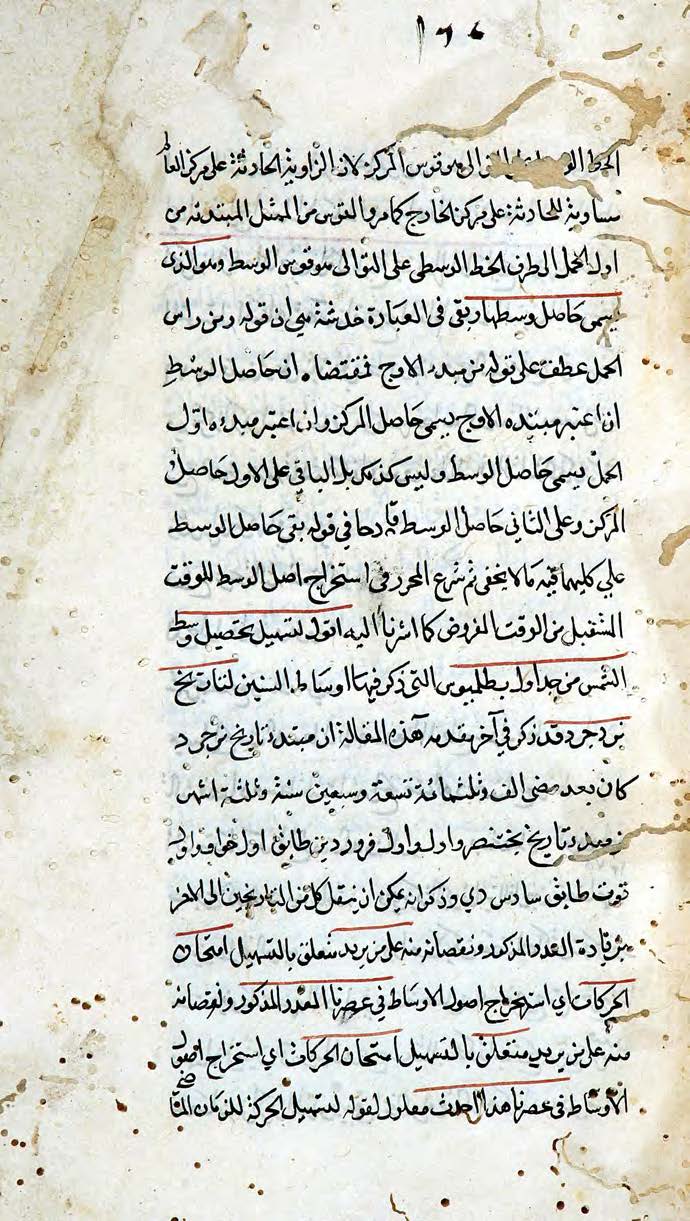 الخط الو التوالى هو قوس المركز لان الزاوية الحادثة على مركز العا
مساوية للحادثة على مركز الخارج كما مر والقوس من الممثل المبتدئه من
اول الحمل الى طرف الخط الوسطى على التوالى هو قوس الوسط وهو الذى
يسمى حاصل وسطها وبقى فى العبارة خدشة هي ان قوله ومن راس
الحمل عطف على قوله من مبدء الاوج فمقتضاه ان حاصل الوسط
ان اعتبر مبتدءه الاوج يسمى حاصل المركز وان اعتبر مبدءه اول
الحمل يسمى حاصل الوسط وليس كذلك بل الباقي على الاول حاصل
المركز وعلى الثاني حاصل الوسط في قوله بقى حاصل الوسط
على كليهما فيه ما لا يخفى ثم شرع المحرر فى استخراج اصل الوسط للوقت
المستقبل من الوقت المفروض كما اشرنا اليه اقول لتسهيل تحصيل وسط
الشمس من جداول بطلميوس التي ذكر فيها اوساط السنين لتاريخ
يزدجرد قد ذكر في آخر مقدمه هذه المقالة ان مبتدء تاريخ يزدجرد
كان بعد مضى الف وثلثمائة تسعة وسبعين سنة وثلثة اشهر
من مبدء تاريخ بختنصر واول واول فروردين طابق اول هو اول
توت طابق سادس دي وذكر انه يمكن ان ينتقل كل من التاريخين الى الاخر
بزيادة العدد المذكور ونقصانه منه على من يريد متعلق بالتسهيل امتحان
الحركات اي استخراج اصول الاوساط في عصرنا العدد المذكور ونقصانه
منه على من يريد متعلق بالتسهيل امتحان الحركات اي استخراج اصول
الاوساط في عصرنا هذا احدث معلول لقوله لتسهيل الحركة للزمان المتا
صح